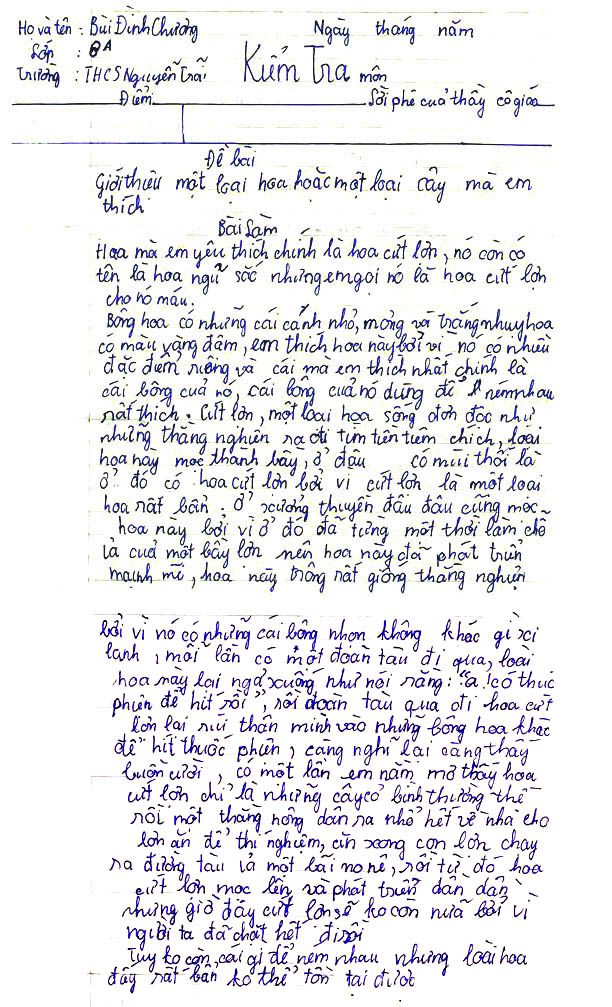 Họ và tên : Bùi Đình Chương
Ngày tháng năm
Lớp : 8A
Trường : THCS Nguyễn Trãi
Kiểm Tra môn
Điểm
Lời phê của thầy cô giáo
Đề bài
Giới thiệu một loại hoa hoặc một loại cây mà em
thích
Bài Làm
Hoa mà em yêu thích chính là hoa cứt lợn, nó còn có
tên là hoa ngũ sắc nhưng em gọi nó là hoa cứt lợn
cho nó máu.
Bông hoa có những cái cánh nhỏ, mỏng và trắng nhuỵ hoa
có màu vàng đậm, em thích hoa này bởi vì nó có nhiều
đặc điểm riêng và cái mà em thích nhất chính là
cái bông của nó, cái bông của nó dùng để ném nhau
rất thích. Cứt lợn, một loài hoa sống đơn độc như
những thằng nghiện ra đi tìm tiên tiêm chích, loài
hoa này mọc thành bầy, ở đâu có mùi thối là
ở đó có hoa cứt lợn bởi vì cứt lợn là một loài
hoa rất bẩn. Ở xưởng thuyền đâu đâu cũng mọc
hoa này bởi vì ở đó đã từng một thời làm chỗ
ỉa của một bầy lợn nên hoa này đã phát triển
mạnh mẽ, hoa này trông rất giống thằng nghiện
bởi vì nó có những cái bông nhọn không khác gì xi
lanh, mỗi lần có một đoàn tàu đi qua, loài
hoa này lại ngả xuống như nói rằng: "a! có thuốc
phiện để hít rồi", rồi đoàn tàu qua đi hoa cứt
lợn lại rúi thân mình vào những bông hoa khác
để hít thuốc phiện, càng nghĩ lại càng thấy
buồn cười, có một lần em nằm mơ thấy hoa
cứt lợn chỉ là những cây cỏ bình thường thế
rồi một thằng nông dân ra nhổ hết về nhà cho
lợn ăn để thí nghiệm, ăn xong con lợn chạy
ra đường tàu ỉa một bãi no nê, rồi từ đó hoa
cứt lợn mọc lên và phát triển dần dần
nhưng giờ đây cứt lợn sẽ ko còn nữa bởi vì
người ta đã chặt hết đi rồi
Tuy ko còn cái gì để ném nhau nhưng loài hoa
đấy rất bẩn ko thể tồn tại được